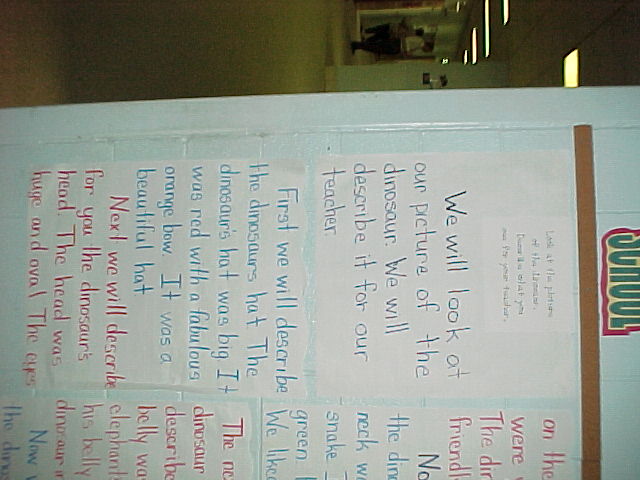 SCHOOL
Look at the picture
of the dinosaur.
Describe what you
see for your teacher.
We will look at
our picture of the
dinosaur. We will
describe it for our
teacher.
First we will describe
the dinosaur's hat. The
dinosaur's hat was big. It
was red with a fabulous
orange bow. It was a
beautiful hat
Next we will describe
for you the dinosaur's
head. The head was
huge and oval. The eyes
on the
were
The
friendl
the
neck
snake.
green.
We like
The
dinosaur
describe
belly was
elephant
his belly
dinosaur
Now
the